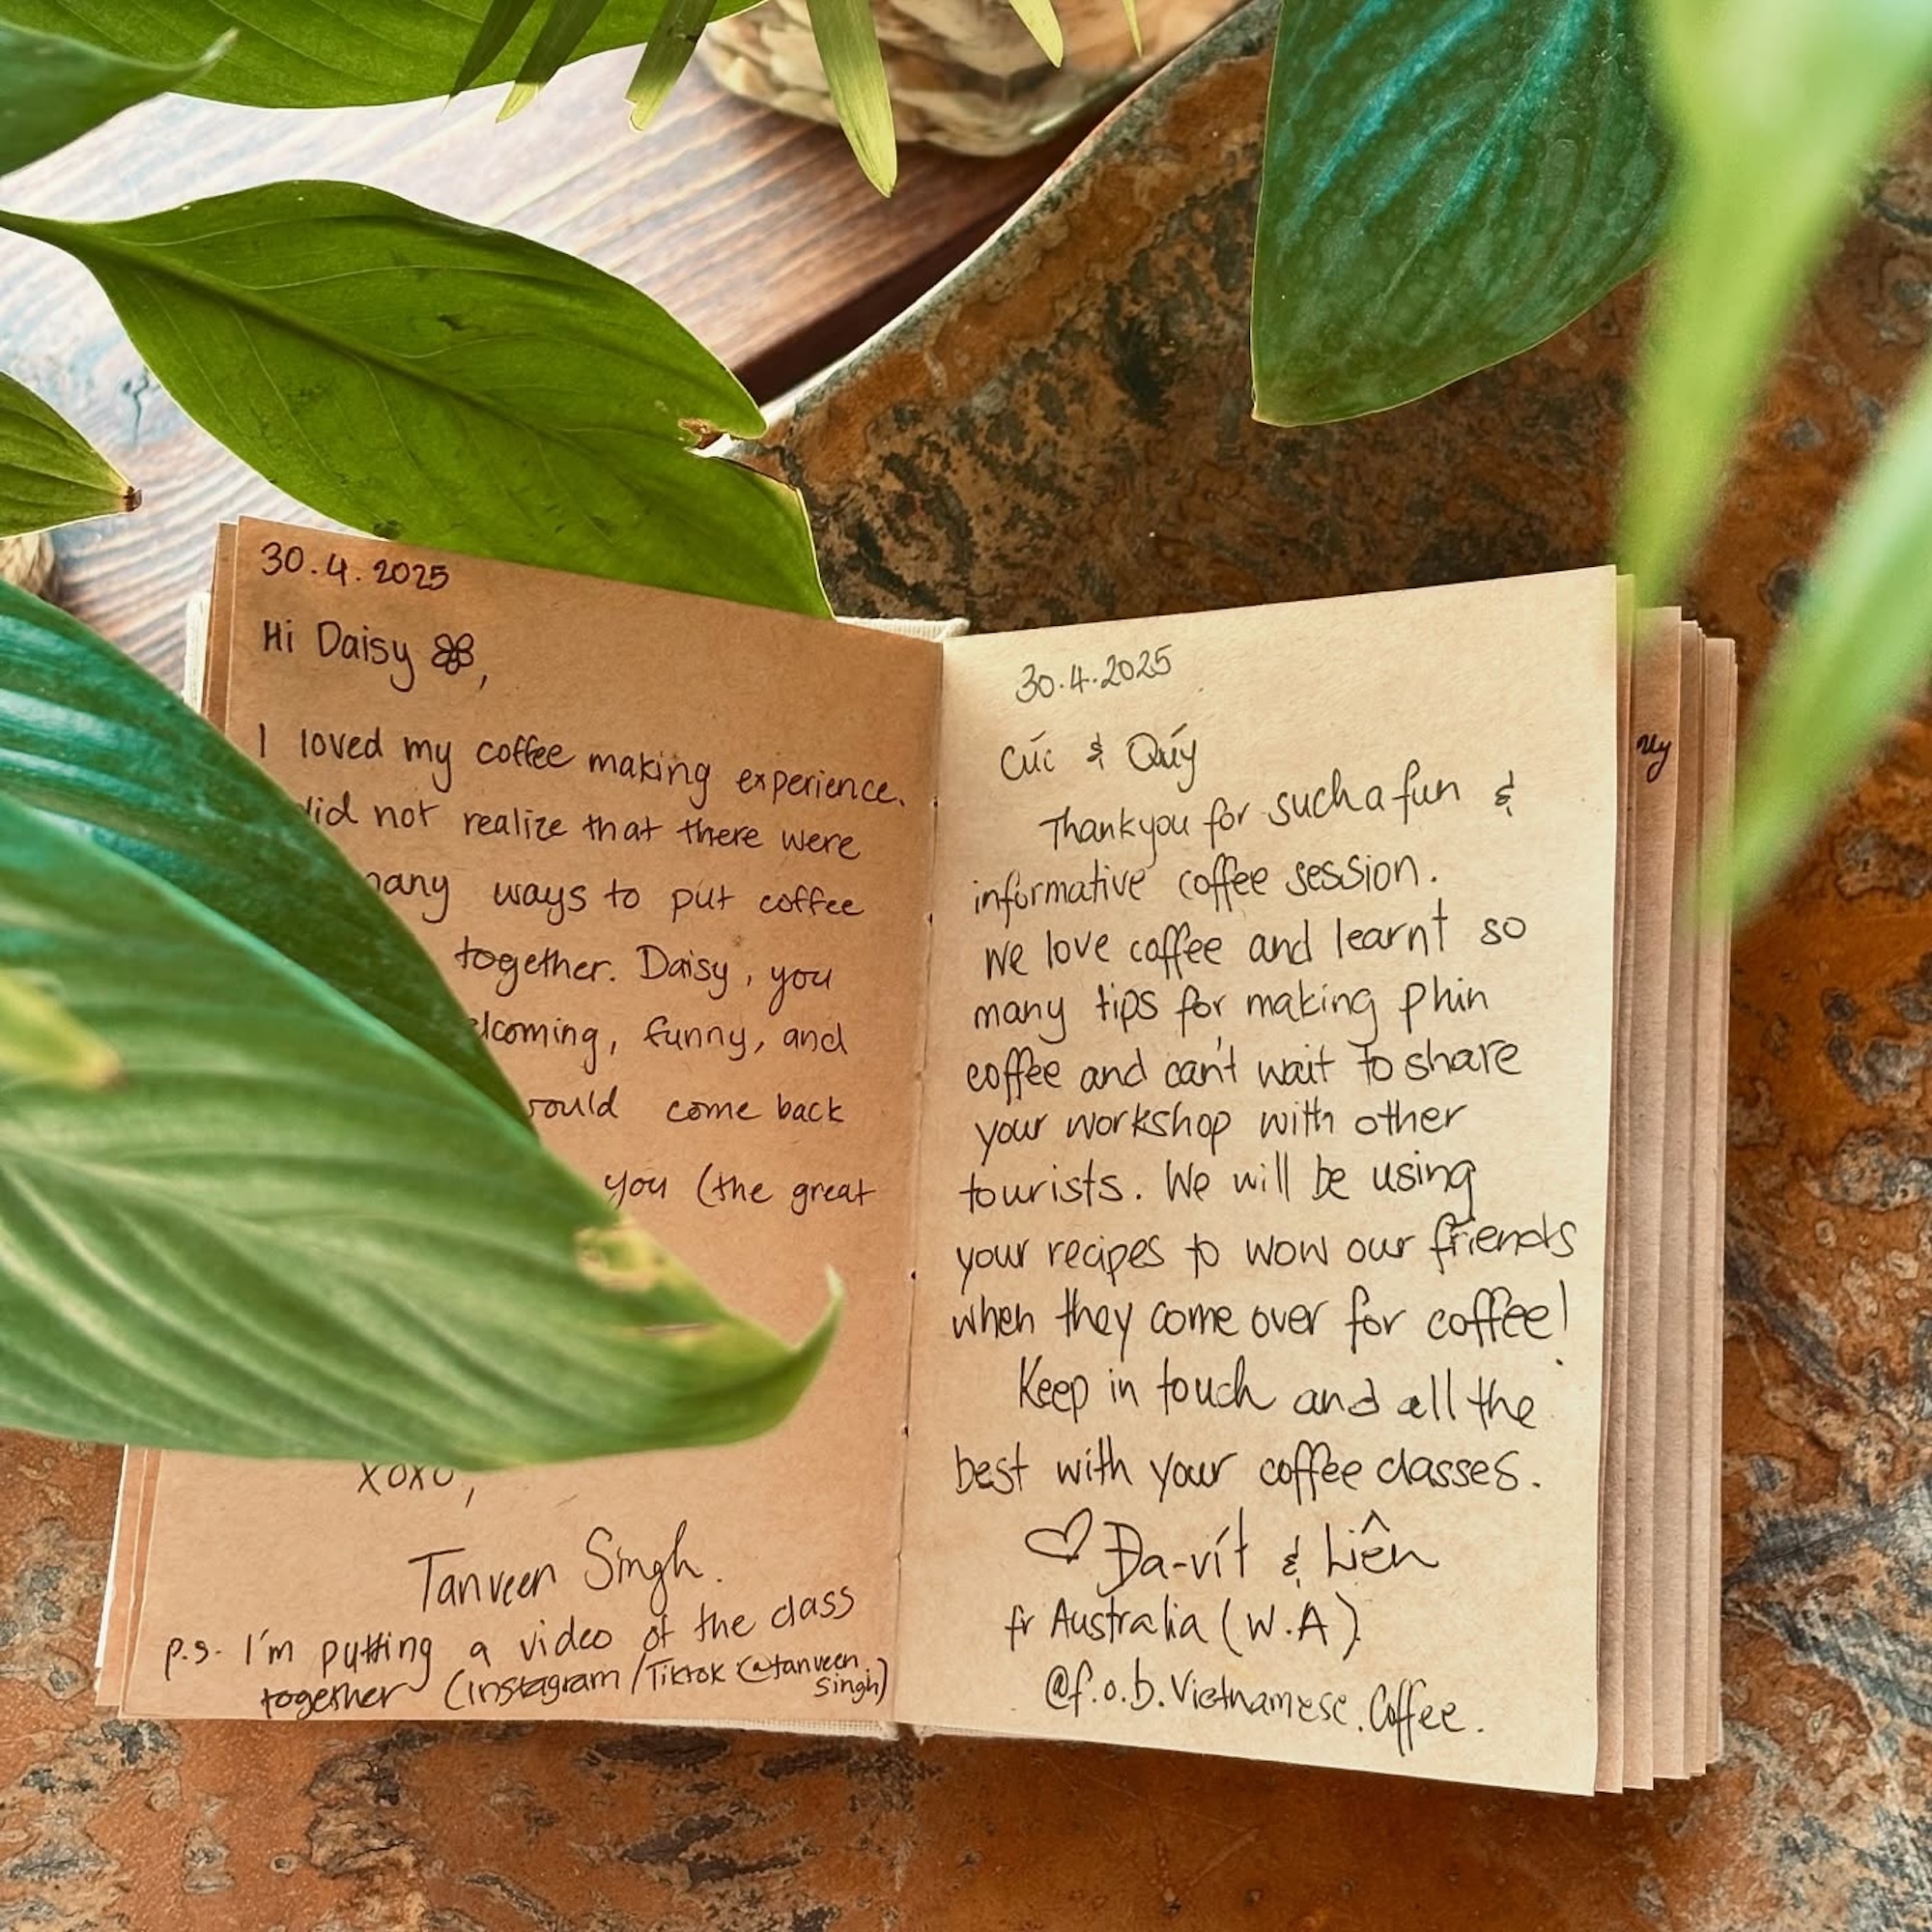 30.4.2025
Hi Daisy ,
I loved my coffee making experience.
not realize that there were
ways to put coffee
together. Daisy, you
funny, and
come back
you (the great
xoxo,
Tanveen Singh.
p.s. I'm putting a video of the class
together (instagram/Tiktok @tanveen
singh)
30.4.2025
Cúc & Quý
Thankyou for such a fun &
informative coffee session.
We love coffee and learnt so
many tips for making phin
coffee and can't wait to share
your workshop with other
tourists. We will be using
your recipes to wow our friends
when they come over for coffee!
Keep in touch and all the
best with your coffee classes.
♡ Đa-vít & Liên
fr Australia (W.A).
@f.o.b.Vietnamese.Coffee.